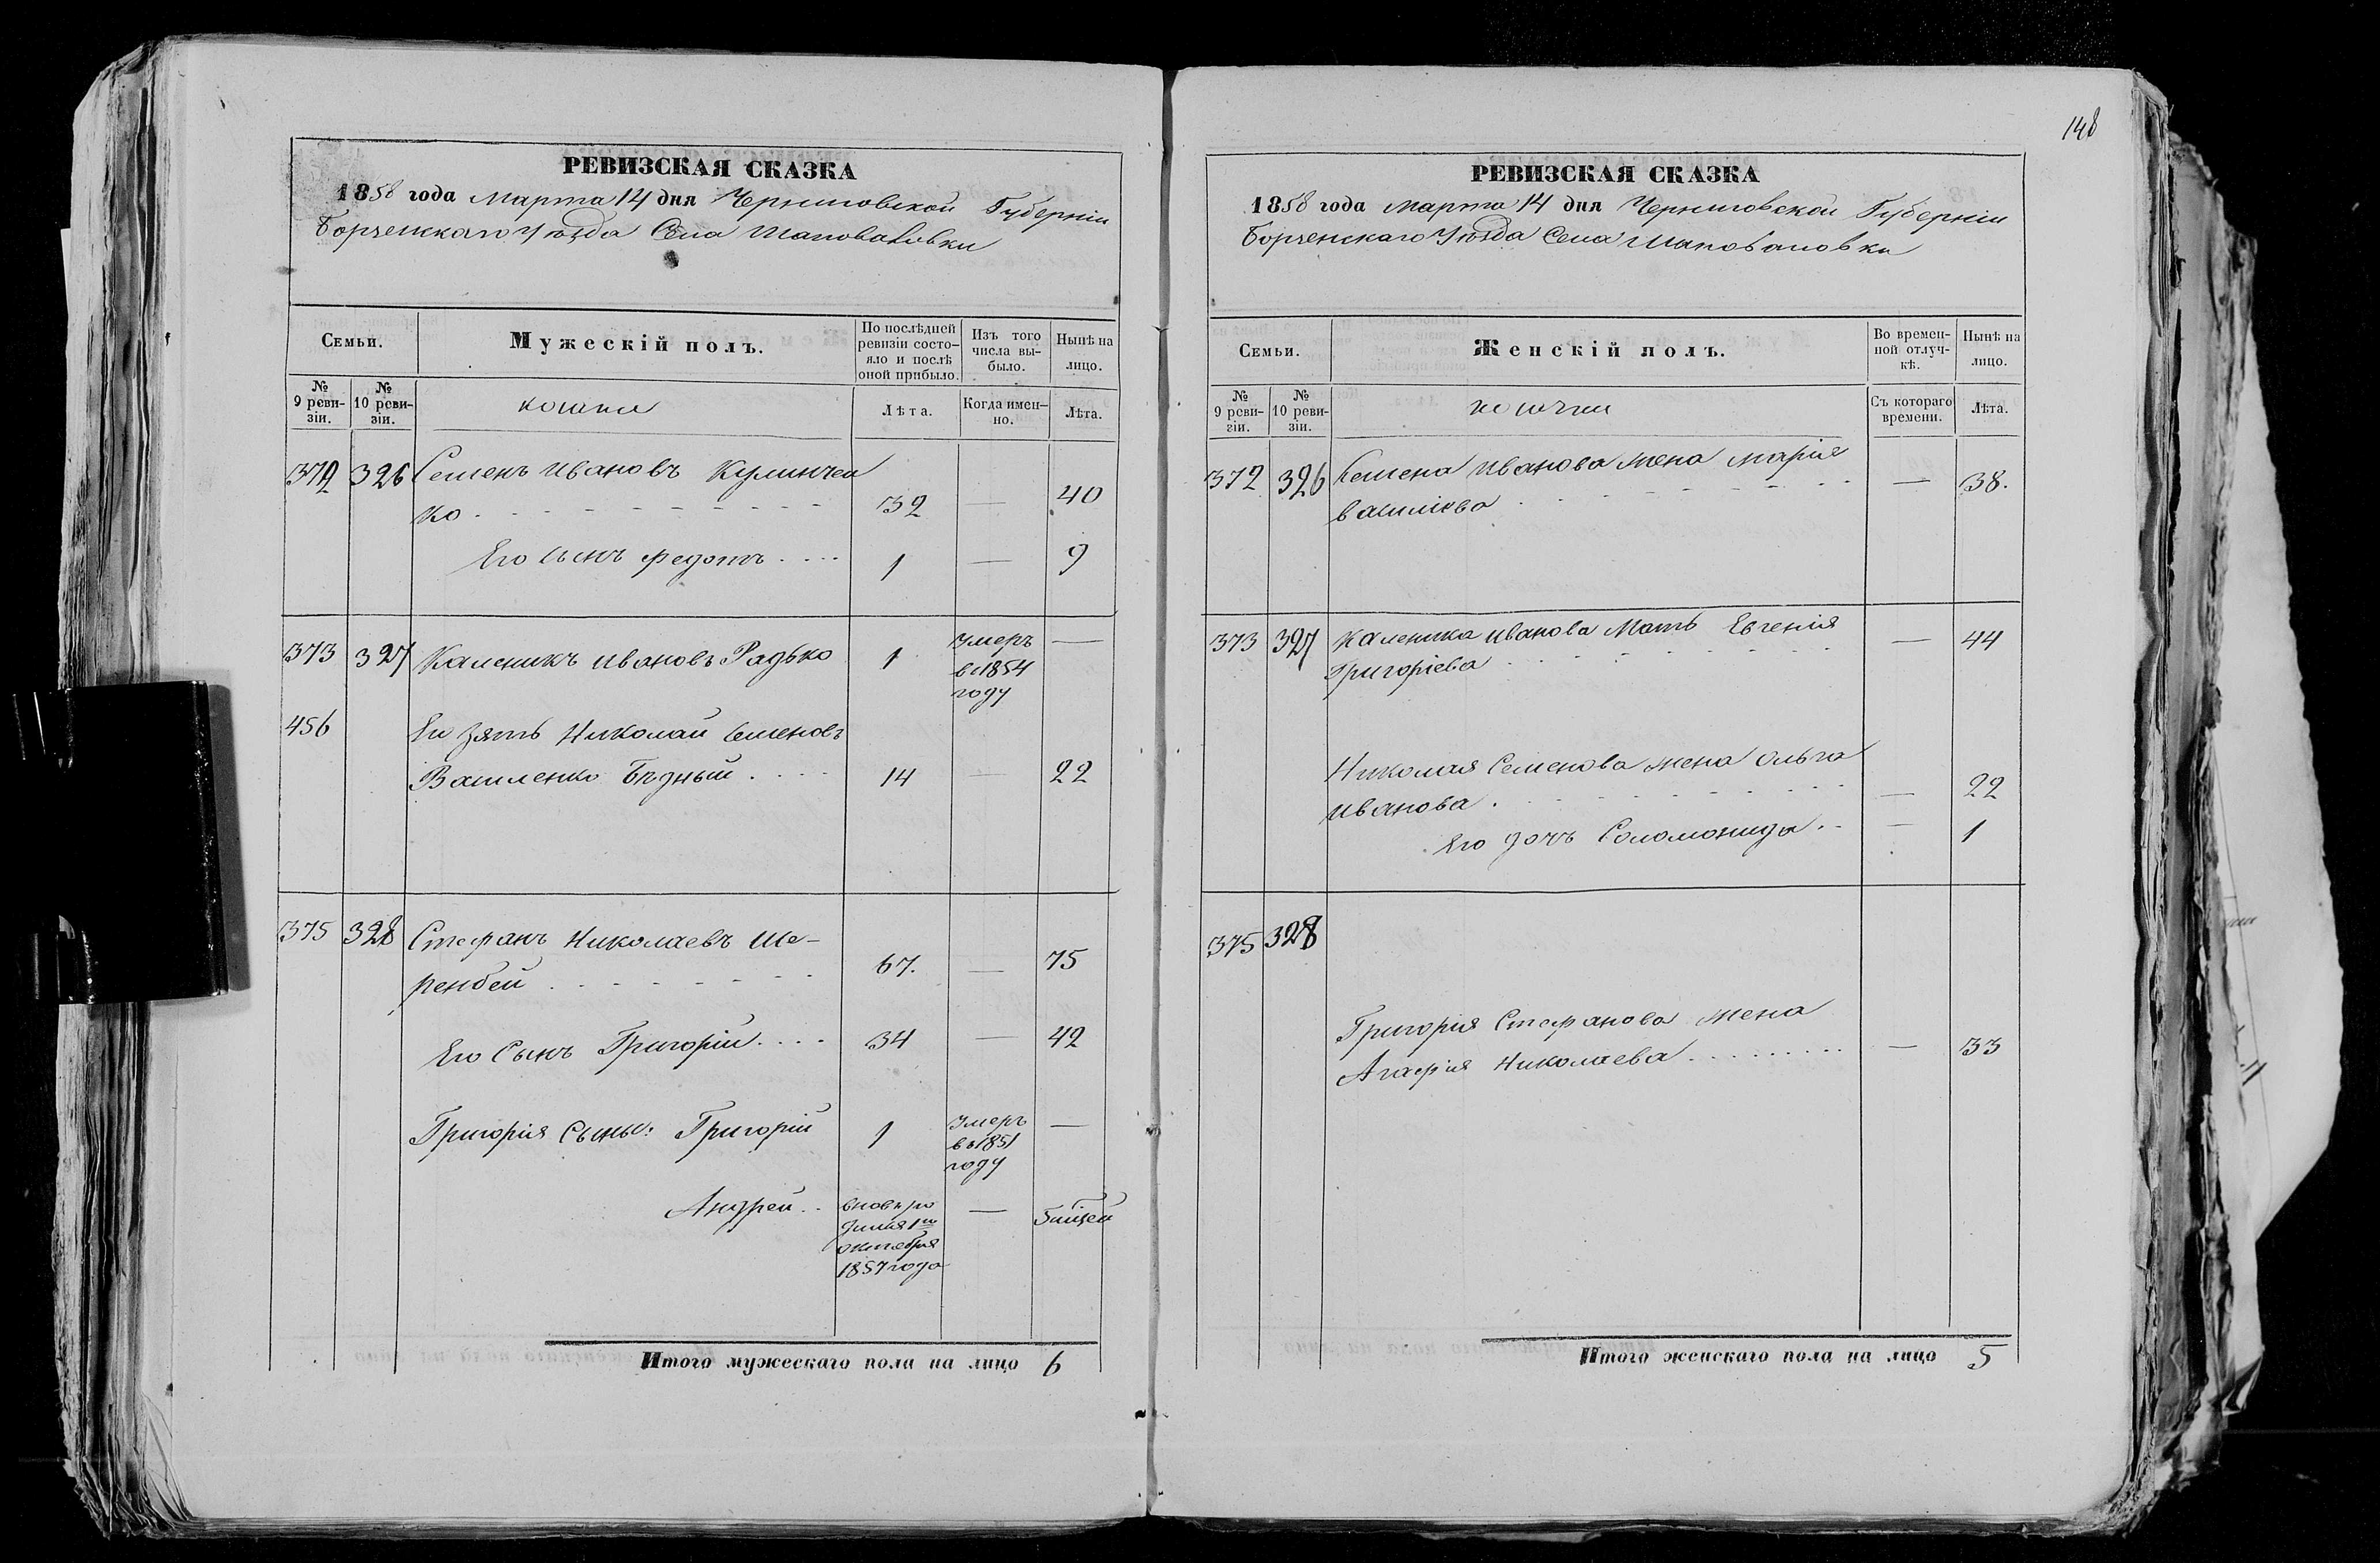 148
РЕВИЗСКАЯ СКАЗКА
1858 года Марта 14 дня Черниговской Губерніи
Борзенскаго Уѣзда Села Шаповаловки
Семьи.
Мужескій полъ.
По послѣдней ревизіи состояло и послѣ оной прибыло.
Изъ того числа выбыло.
Нынѣ на лицо.
№ 9 ревизіи.
№ 10 ревизіи.
козаки
Лѣта.
Когда именно.
Лѣта.
372 326 Семенъ Ивановъ Кулинчен
ко 32 — 40
Его сынъ Федотъ 1 — 9
373 327 Каленикъ Ивановъ Радько 1 Умеръ в 1854 году —
456 Ея зять Николай Семеновъ
Василенко Бѣдный 14 — 22
375 328 Стефанъ Николаевъ Ше-
ренбей 67. — 75
Его Сынъ Григорій 34 — 42
Григорія Сыны: Григорій 1 Умеръ въ 1851 году —
Андрей вновь ро
октября
1857 года
Итого мужескаго пола на лицо 6
РЕВИЗСКАЯ СКАЗКА
1858 года Марта 14 дня Черниговской Губерніи
Борзенскаго Уѣзда Села Шаповаловки
Семьи.
Женскій полъ.
Во временной отлучкѣ.
Нынѣ на лицо.
№ 9 ревизіи.
№ 10 ревизіи.
козачки
Съ котораго времени.
Лѣта.
372 326 Семена Иванова жена Марія
Василіева — 38.
373 327 Каленика Иванова Мать Евгенія
Григоріева — 44
Николая Семенова жена Ольга
Иванова — 22
Его дочь Соломонида — 1
375 328
Григорія Стефанова жена
Агафія Николаева — 33
Итого женскаго пола на лицо 5